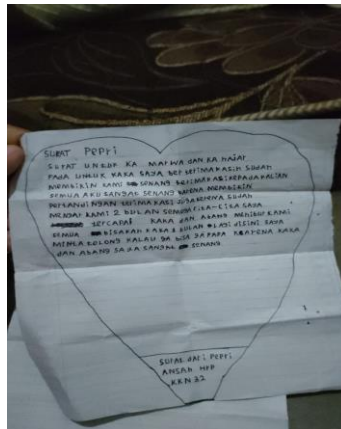 SURAT PEPRI
SURAT UNTUK KA MARWA DAN KA HAJAR
PADA UNTUK KAKA SAYA BERTERIMAKASIH SUDAH
MEMBIKIN KAMI SENANG TERIMAKASI KEPADA KALIAN
SEMUA AKU SANGAT SENANG KARENA MEMBIKIN
PERTANDINGAN TERIMAKASI SUDAH
KAMI 2 BULAN SEMOGA CITA-CITA SAYA
TERCAPAI KAKA DAN ABANG MENGHIBUR KAMI
SEMUA BISAKAH KAKA 2 BULAN LAGI DISINI SAYA
MINTA TOLONG KALAU GA BISA GA PAPA KARENA KAKA
DAN ABANG SAYA SANGAT SENANG
SURAT DARI PEPRI
ANSAH
KKN 32